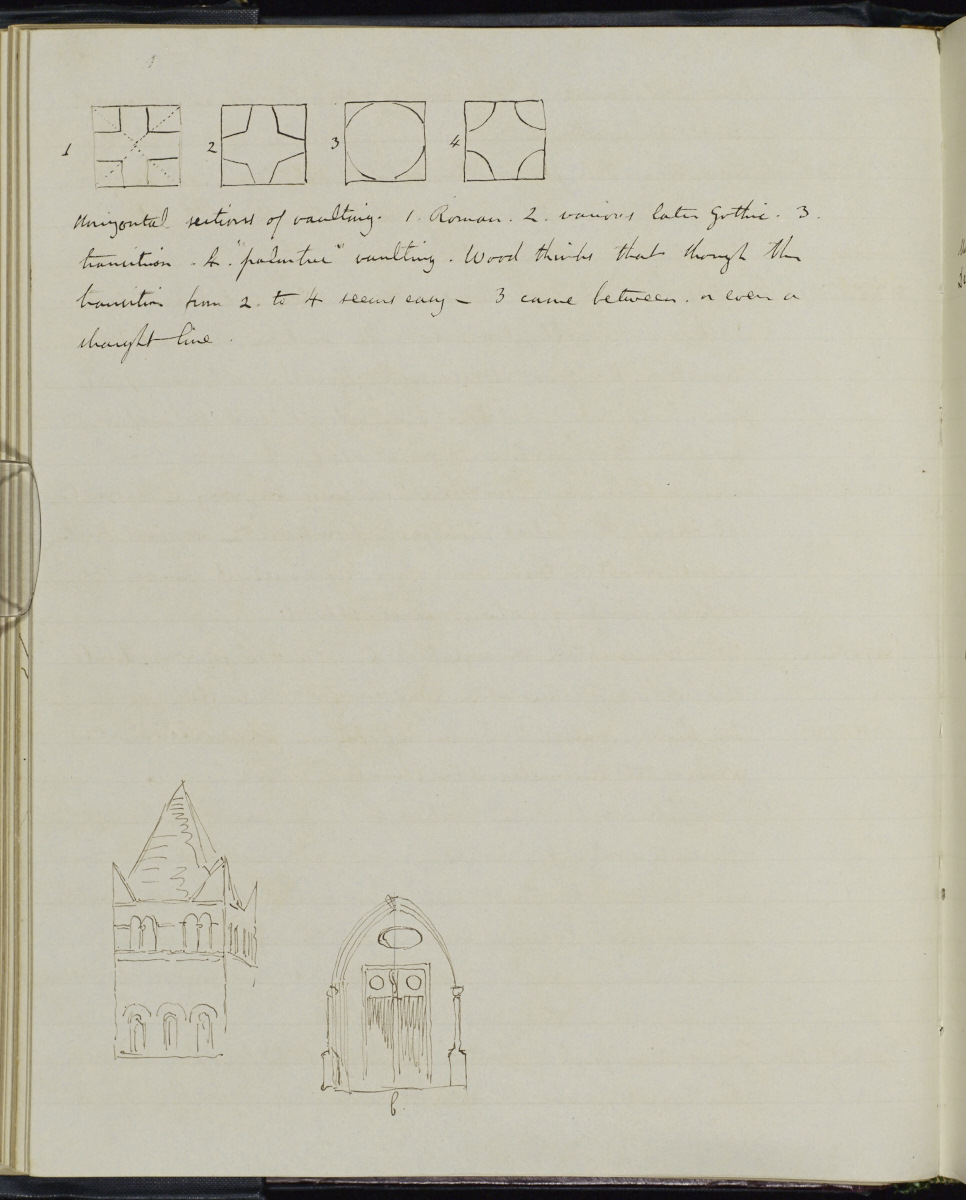 1 2 3 4
Horizontal sections of vaulting. 1. Roman. 2. various later Gothic. 3.
transition. 4. "palmtree" vaulting. Wood thinks that though the
transition from 2. to 4 seems easy – 3 came between. or even a
straight line.
b.